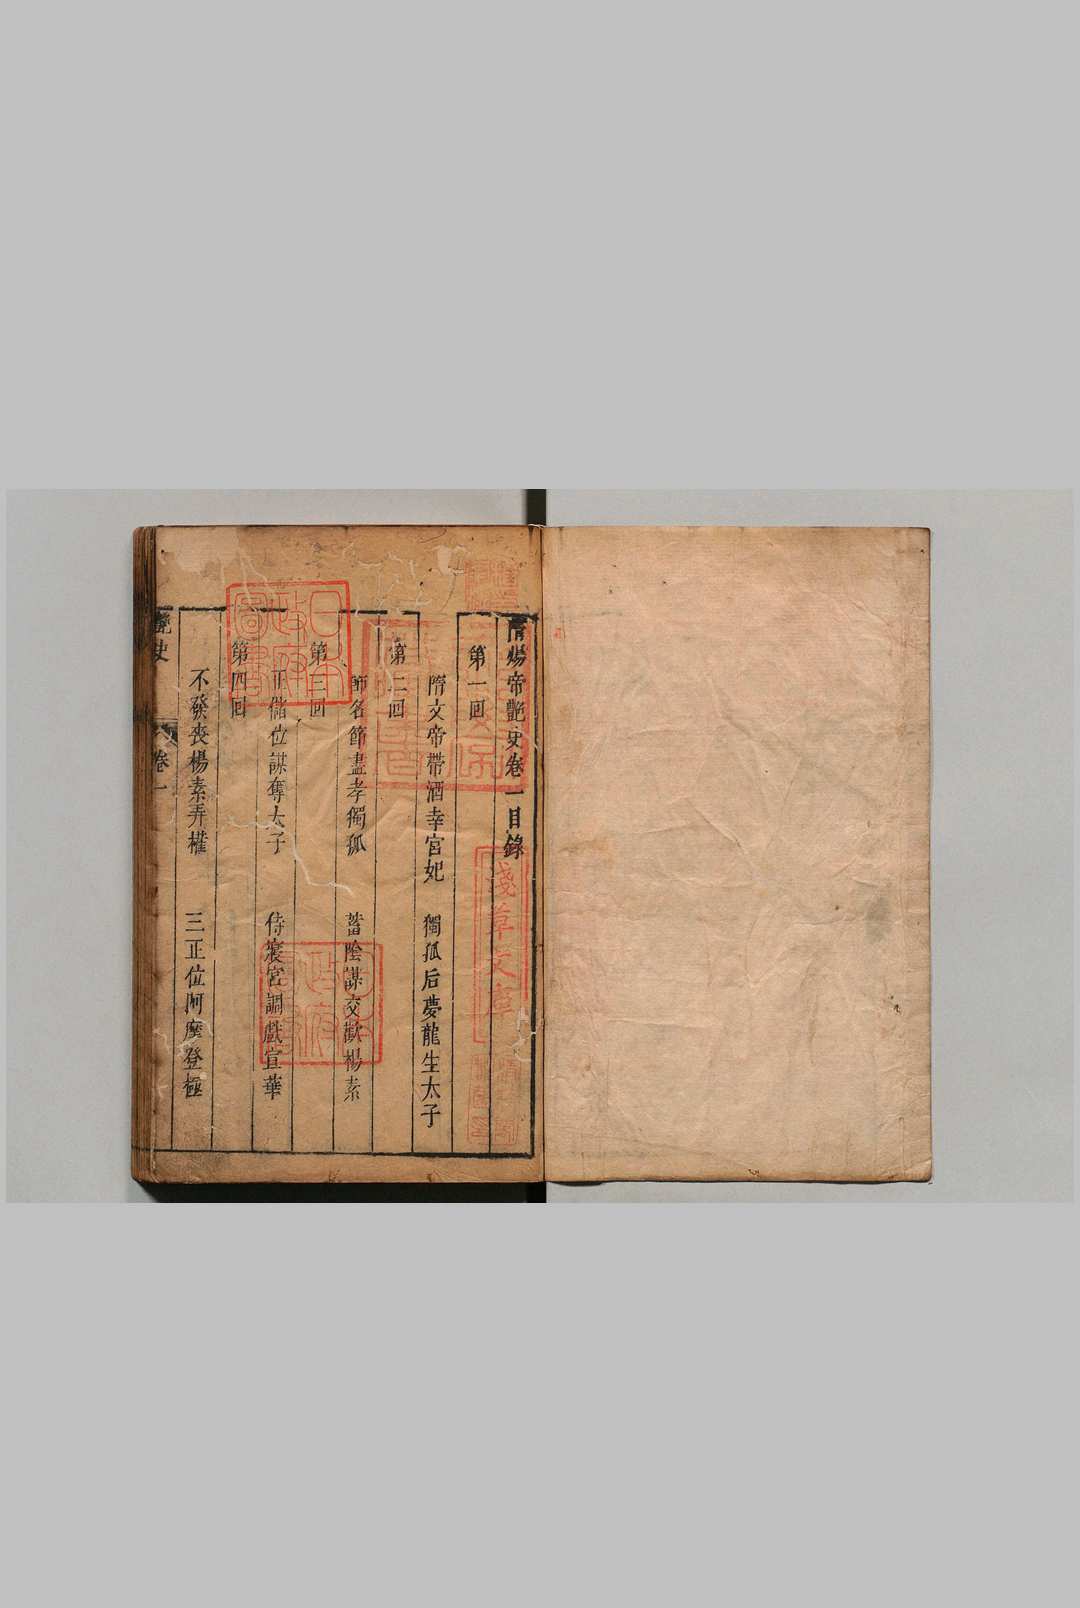 隋煬帝艷史卷一目錄
第一回
隋文帝帶酒幸宮妃　獨孤后夢龍生太子
第二回
飾名節盡孝獨孤　蓄陰謀交歡楊素
第三回
正儲位謀奪太子　侍寢宮調戲宣華
第四回
不發喪楊素弄權　三正位阿摩登極
艷史　卷一
日本政府圖書
淺草文庫